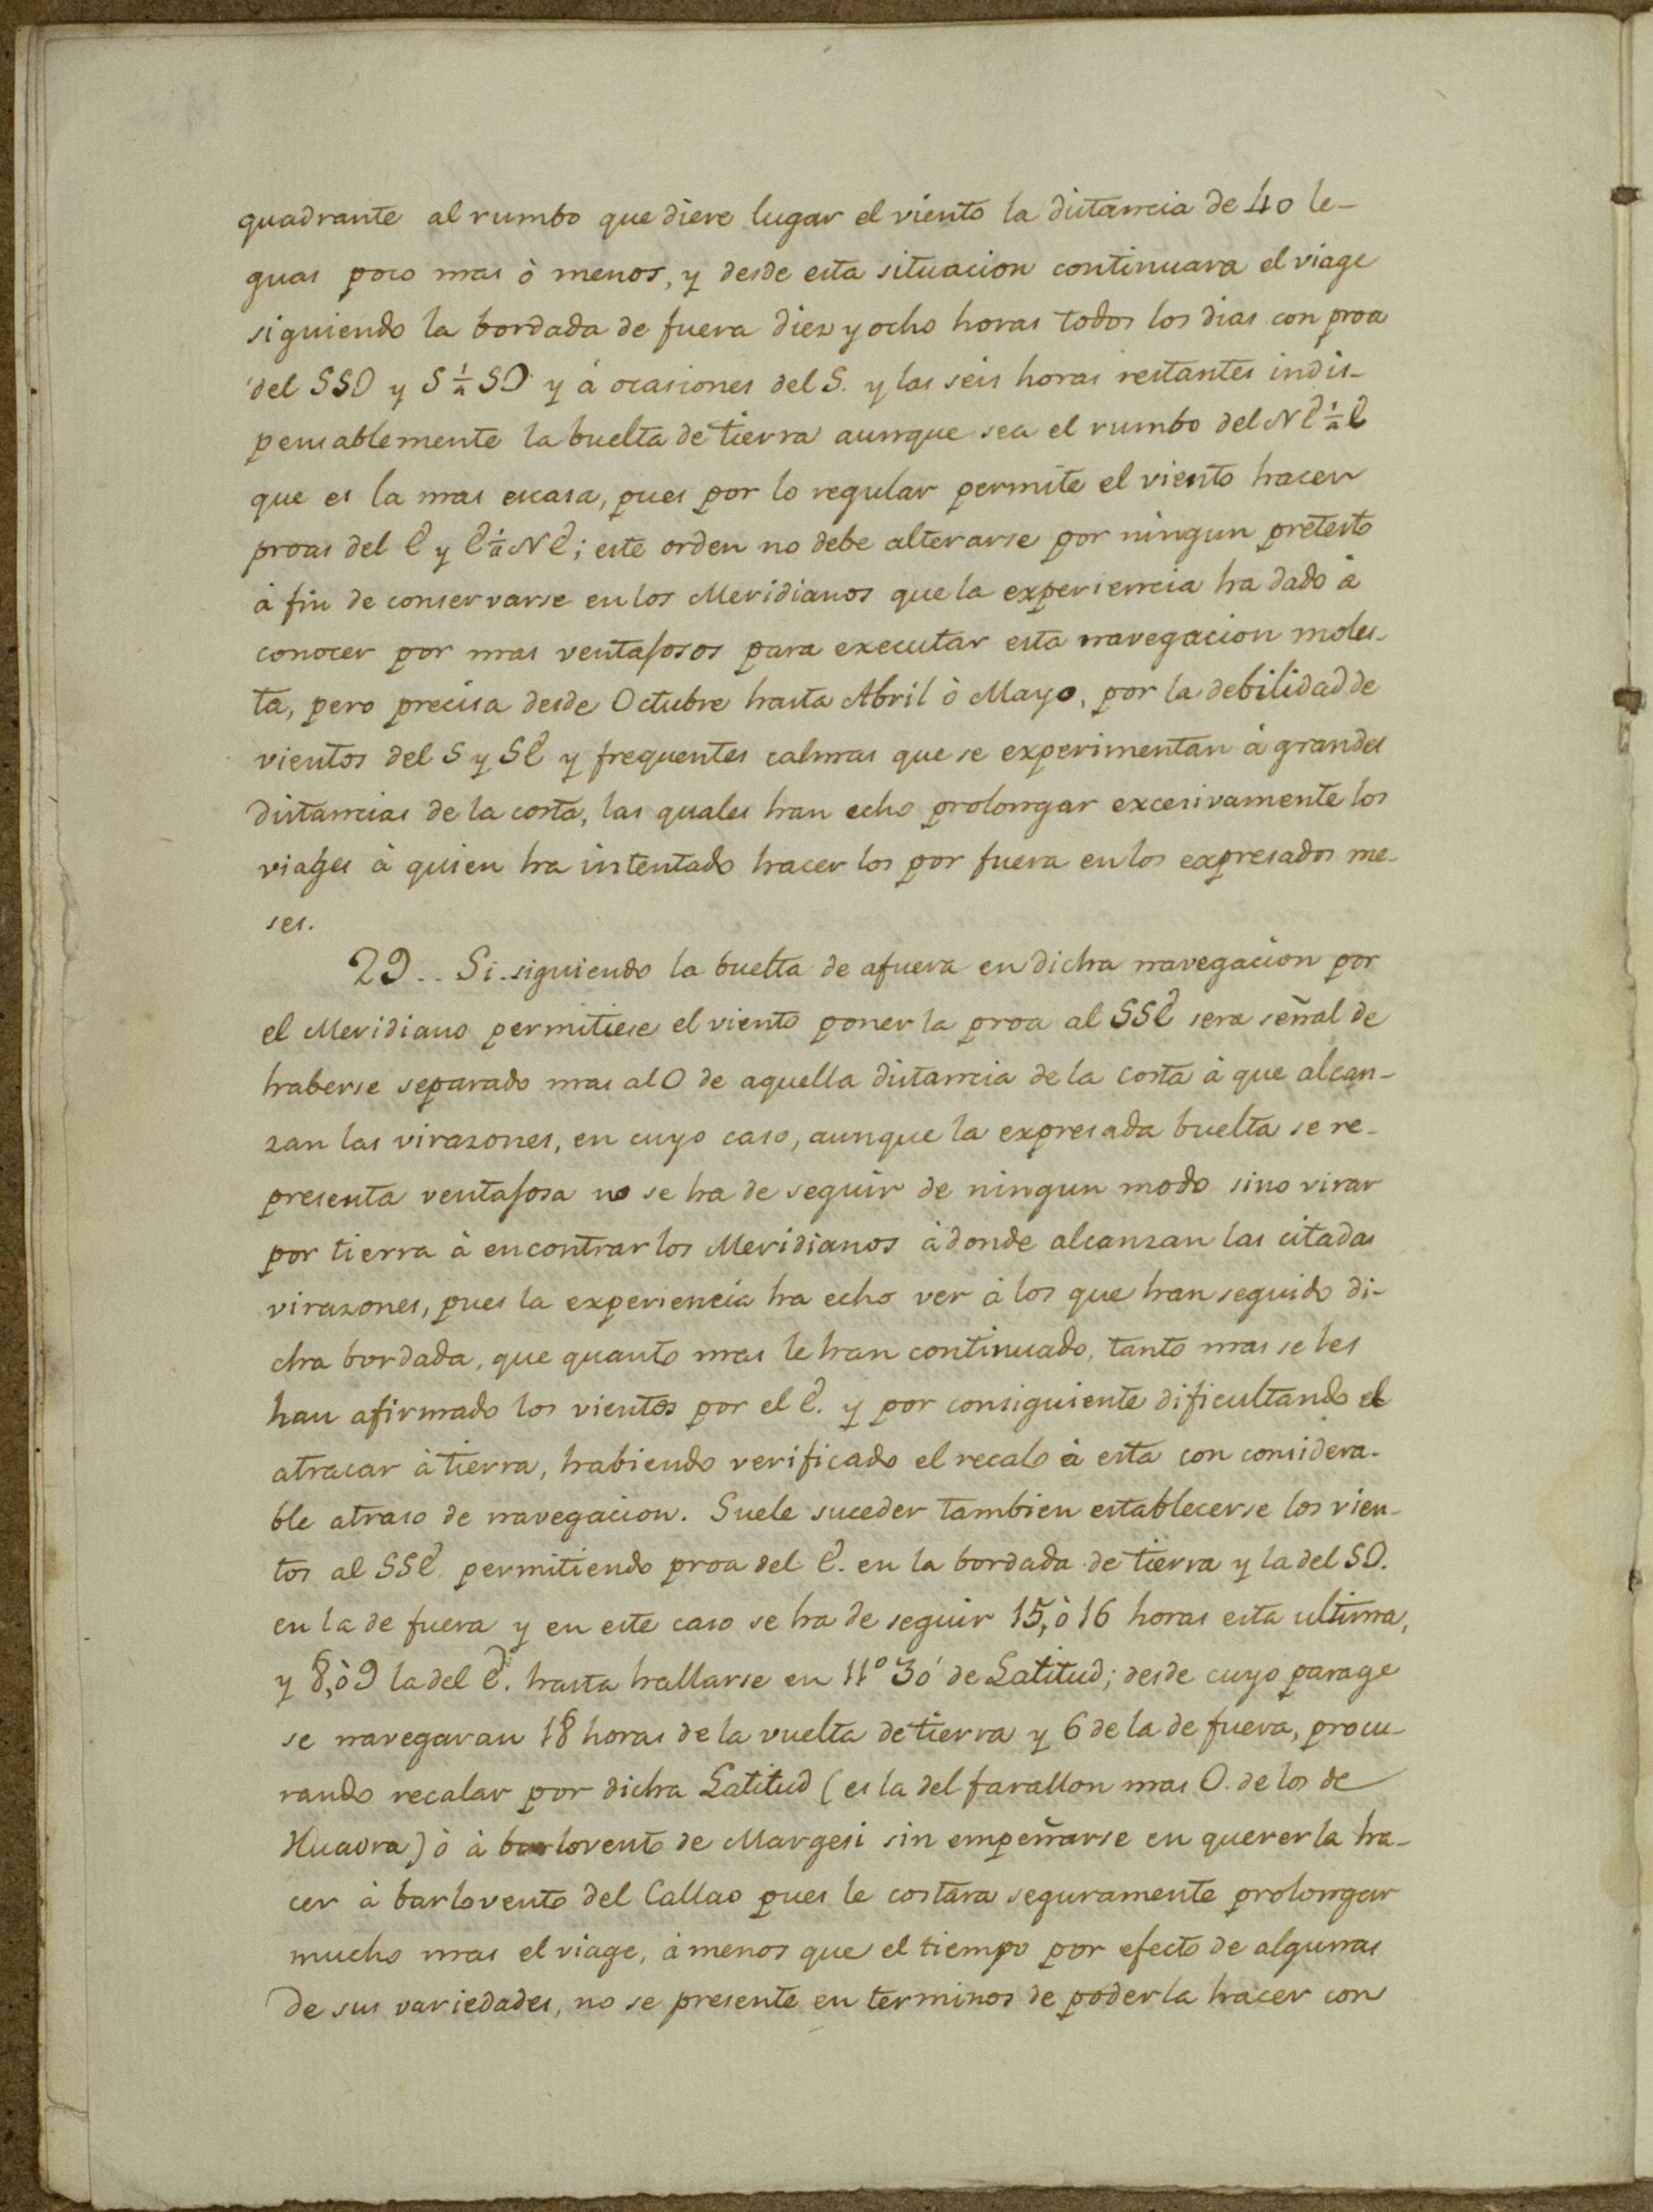 quadrante al rumbo que diere lugar el viento la distancia de 40 le-
guas poco mas ò menos, y desde esta situacion continuara el viage
siguiendo la bordada de fuera diez y ocho horas todos los dias con proa
del SSO y S 1/4 SO y à ocasiones del S. y las seis horas restantes indis-
pensablemente la buelta de tierra aunque sea el rumbo del NE 1/4 E
que es la mas escasa, pues por lo regular permite el viento hacer
proas del E y E 1/4 NE; este orden no debe alterarse por ningun pretesto
à fin de conservarse en los Meridianos que la experiencia ha dado à
conocer por mas ventajosos para executar esta navegacion moles-
ta, pero precisa desde Octubre hasta Abril ò Mayo, por la debilidad de
vientos del S y SE y frequentes calmas que se experimentan à grandes
distancias de la costa, las quales han echo prolongar excesivamente los
viages à quien ha intentado hacer los por fuera en los expresados me-
ses.
29.. Si siguiendo la buelta de afuera en dicha navegacion por
el Meridiano permitiese el viento poner la proa al SSE sera señal de
haberse separado mas al O de aquella distancia de la costa à que alcan-
zan las virazones, en cuyo caso, aunque la expresada buelta se re-
presenta ventajosa no se ha de seguir de ningun modo sino virar
por tierra à encontrar los Meridianos à donde alcanzan las citadas
virazones, pues la experiencia ha echo ver à los que han seguido di-
cha bordada, que quanto mas le han continuado, tanto mas se les
han afirmado los vientos por el E. y por consiguiente dificultando el
atracar à tierra, habiendo verificado el recalo à esta con considera-
ble atraso de navegacion. Suele suceder tambien establecerse los vien-
tos al SSE permitiendo proa del E. en la bordada de tierra y la del SO.
en la de fuera y en este caso se ha de seguir 15, ò 16 horas esta ultima,
y 8, ò 9 la del E. hasta hallarse en 11° 30' de Latitud; desde cuyo parage
se navegaran 18 horas de la vuelta de tierra y 6 de la de fuera, procu-
rando recalar por dicha Latitud (es la del farallon mas O. de los de
Huaora) ò à barlovento de Margesi sin empeñarse en querer la ha-
cer à barlovento del Callao pues le costara seguramente prolongar
mucho mas el viage, à menos que el tiempo por efecto de algunas
de sus variedades, no se presente en terminos de poder la hacer con